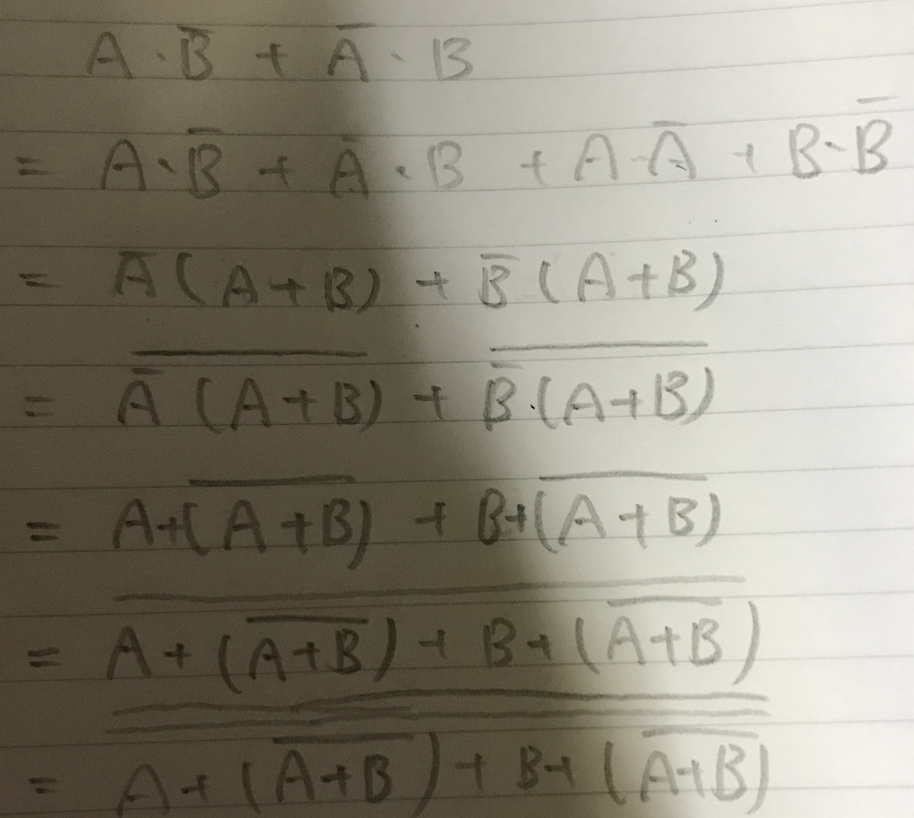 A · B̅ + A̅ · B
= A · B̅ + A̅ · B + A · A̅ + B · B̅
= A̅ (A + B) + B̅ (A + B)
= \overline{A̅ (A + B)} + \overline{B̅ · (A + B)}
= A + (\overline{A + B}) + B + (\overline{A + B})
= \overline{\overline{A + (\overline{A + B}) + B + (\overline{A + B})}}
= \overline{\overline{A + (\overline{A + B}) + B + (\overline{A + B})}}